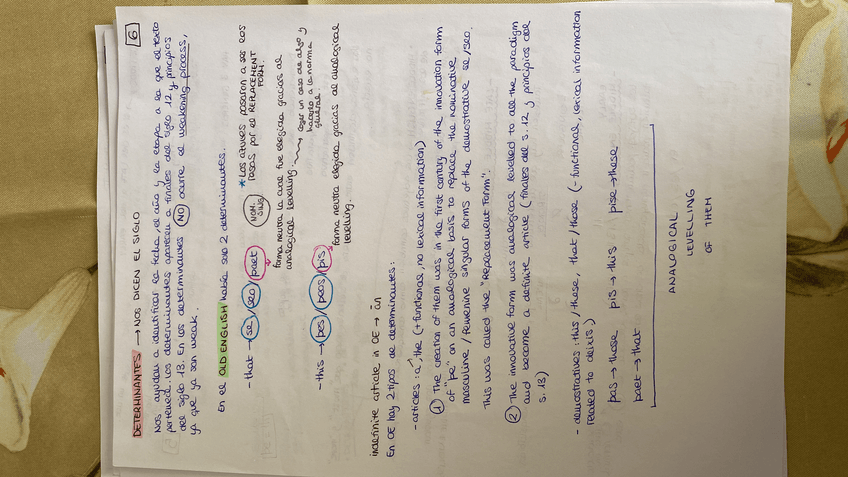 6
DETERMINANTES → NOS DICEN EL SIGLO
Nos ayudan a identificar la fecha, el año y la etapa a la que el texto
pertenece. Los determinantes aparecen a finales del siglo 12 y principios
del siglo 13. En los determinantes NO ocurre el weakening process,
ya que ya son weak.
En el OLD ENGLISH había solo 2 determinantes.
- that → se/seo/paet NOM. SING.
* Las azules pasaron a ser las
rosas por el REPLACEMENT
FORM
forma neutra la cual fue elegida gracias al
analogical levelling.
coger un caso de algo y
hacerlo a la norma
general.
- this → pes/peos/pis
forma neutra elegida gracias al analogical
levelling.
indefinite article in OE → ān
En OE hay 2 tipos de determinantes:
- articles: a, the (+ functional, no lexical information)
① The creation of them was in the first century of the innovation form
of "pe" on an analogical basis to replace the nominative
masculine / femenine singular forms of the demostrative se/seo.
This was called the "Replacement Form".
② The innovative form was analogical levelled to all the paradigm
and become a definite article (finales del s. 12 y principios del
s. 13)
- demostratives: this/these, that/those (- functional, lexical information
related to deixis)
pas → those pis → this pise → these
paet → that
ANALOGICAL
LEVELLING
OF THEM